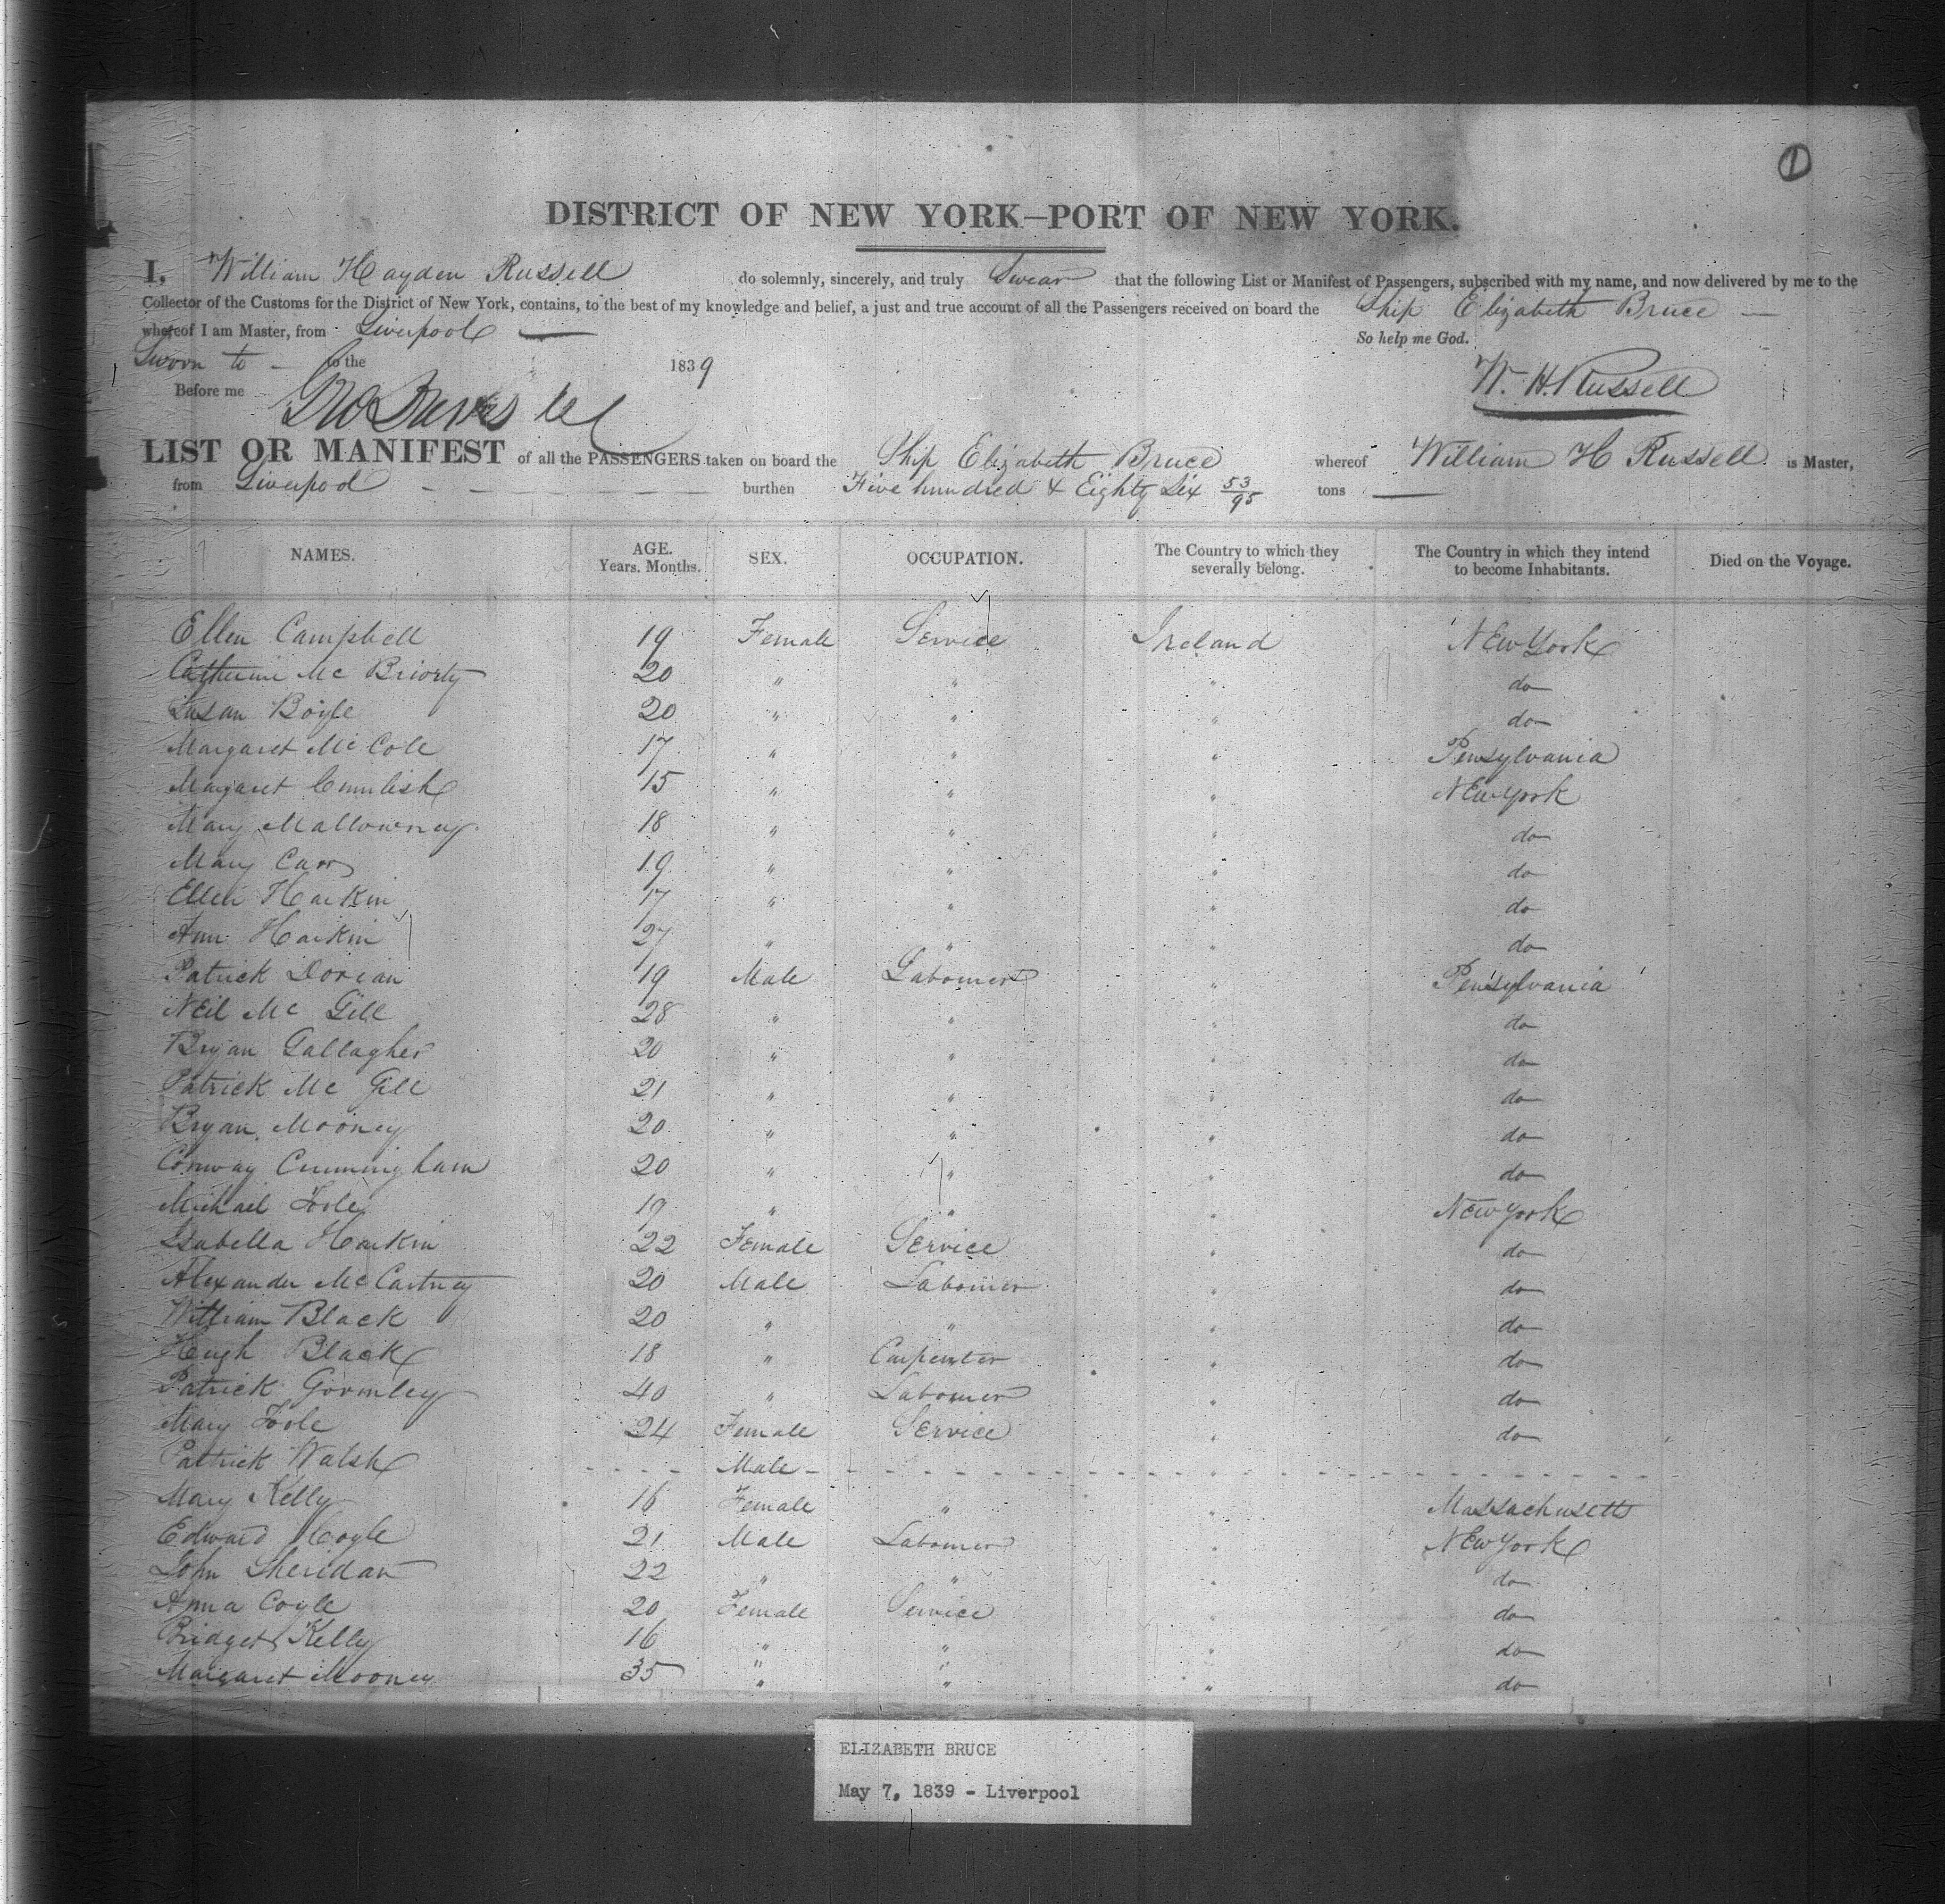 1
DISTRICT OF NEW YORK—PORT OF NEW YORK.
I, William Hayden Russell do solemnly, sincerely, and truly Swear that the following List or Manifest of Passengers, subscribed with my name, and now delivered by me to the
Collector of the Customs for the District of New York, contains, to the best of my knowledge and belief, a just and true account of all the Passengers received on board the Ship Elizabeth Bruce —
whereof I am Master, from Liverpool — So help me God.
Sworn to - to the 1839
Before me W. H. Russell
LIST OR MANIFEST of all the PASSENGERS taken on board the Ship Elizabeth Bruce whereof William H Russell is Master,
from Liverpool burthen Five hundred & Eighty Six 53/95 tons —
NAMES. AGE. Years. Months. SEX. OCCUPATION. The Country to which they severally belong. The Country in which they intend to become Inhabitants. Died on the Voyage.
Ellen Campbell 19 Female Service Ireland New York
Catherine Mc Briorty 20 " " " do
Susan Boyle 20 " " " do
Margaret Mc Cole 17 " " " Pensylvania
Margaret 15 " " " New York
Mary Mallowney 18 " " " do
Mary Carr 19 " " " do
Ellen Harkin 17 " " " do
Ann Harkin 27 " " " do
Patrick Dorian 19 Male Labourers " Pensylvania
Neil Mc Gill 28 " " " do
Bryan Gallagher 20 " " " do
Patrick Mc Gill 21 " " " do
Bryan Mooney 20 " " " do
Conway Cunningham 20 " " " do
Michael Toole 19 " " " New York
Isabella Harkin 22 Female Service " do
Alexander Mc Cartney 20 Male Labourer " do
William Black 20 " " " do
Hugh Black 18 " Carpenter " do
Patrick Gormley 40 " Labourer " do
Mary Toole 24 Female Service " do
Patrick Walsh - - - - Male - - - - " - - - -
Mary Kelly 16 Female " " Massachusetts
Edward Coyle 21 Male Labourer " New York
John Sheridan 22 " " " do
Anna Coyle 20 Female Service " do
Bridget Kelly 16 " " " do
Margaret Mooney 35 " " " do
ELIZABETH BRUCE
May 7, 1839 - Liverpool